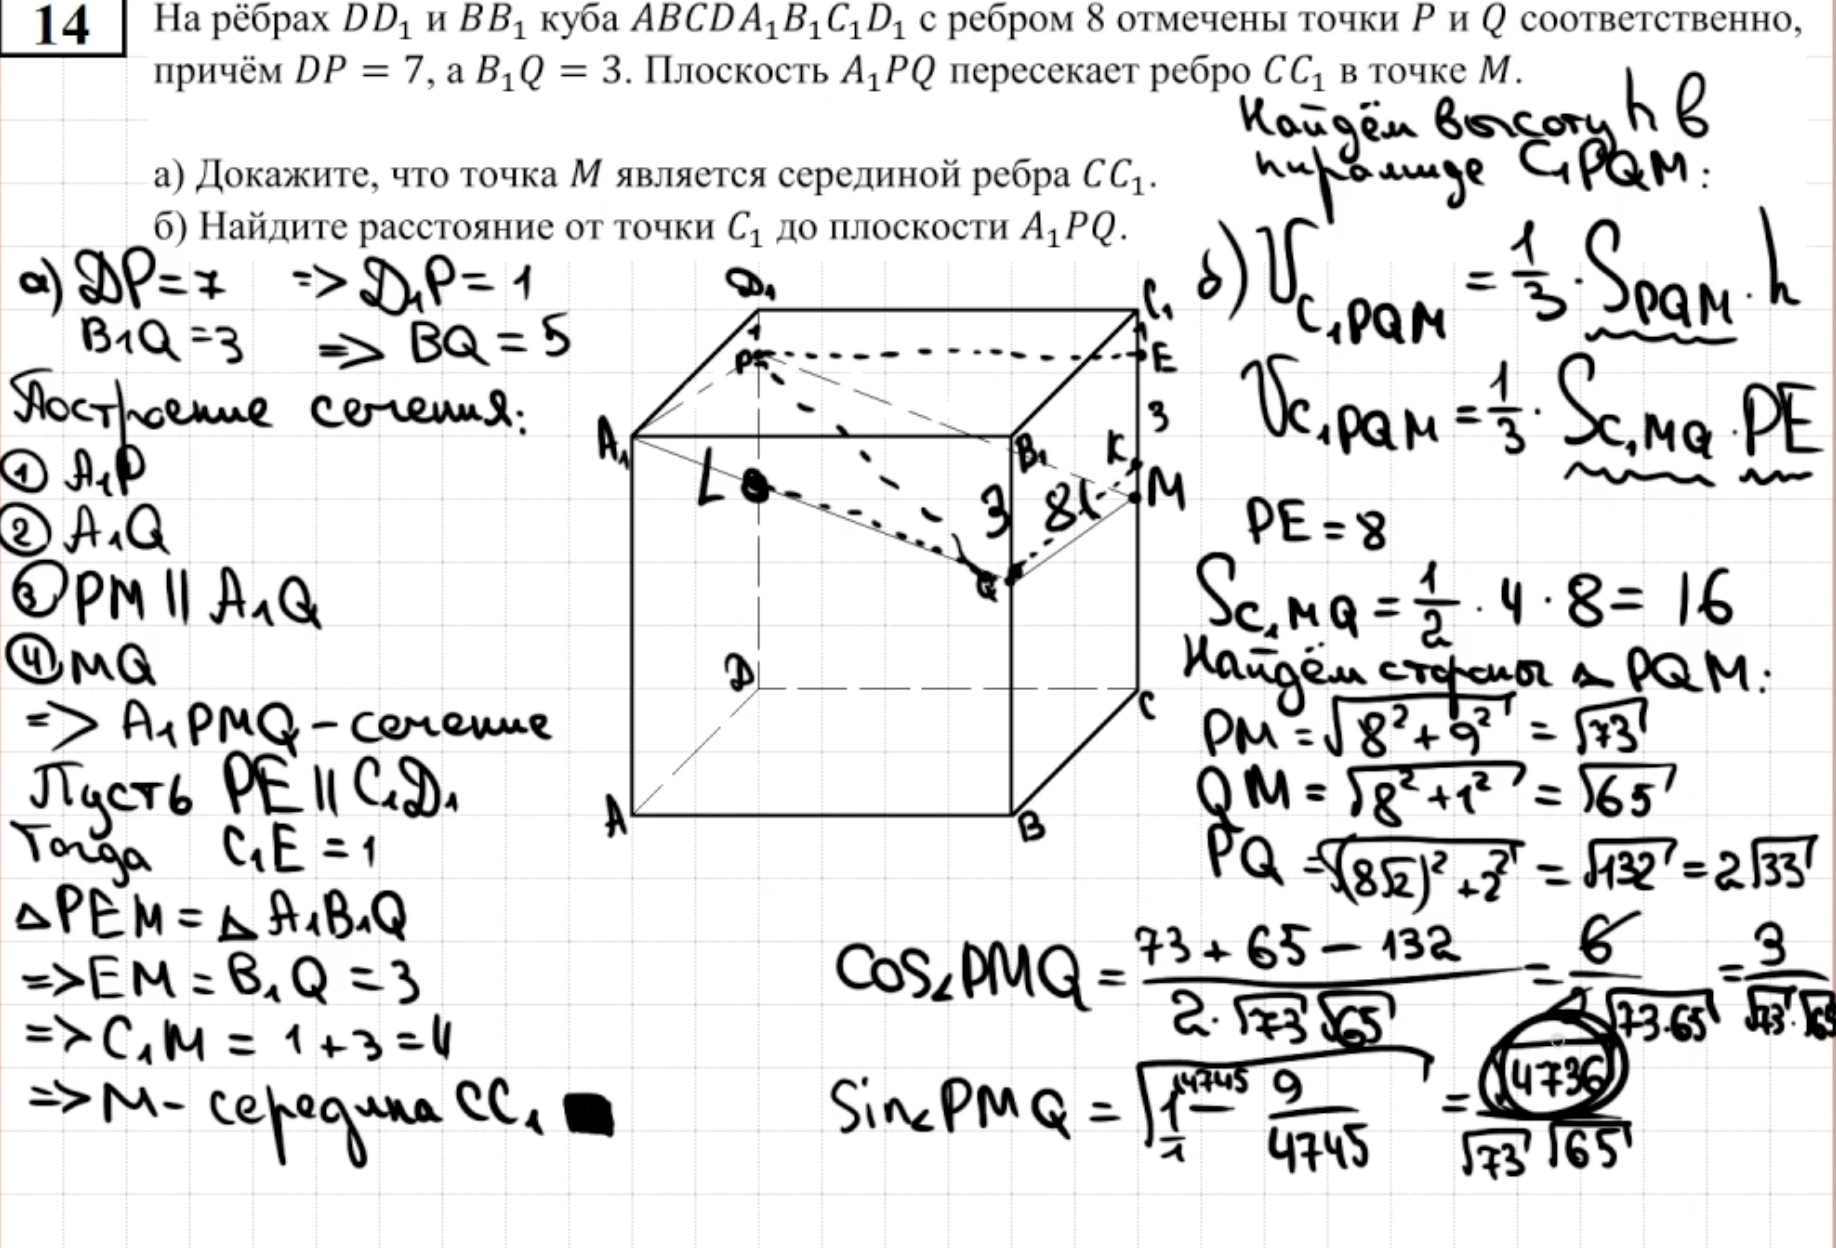 14
На рёбрах DD₁ и BB₁ куба ABCDA₁B₁C₁D₁ с ребром 8 отмечены точки P и Q соответственно,
причём DP = 7, а B₁Q = 3. Плоскость A₁PQ пересекает ребро CC₁ в точке M.
а) Докажите, что точка M является серединой ребра CC₁.
б) Найдите расстояние от точки C₁ до плоскости A₁PQ.
а) DP=7 => D₁P=1
B₁Q=3 => BQ=5
Построение сечения:
① A₁P
② A₁Q
③ PM || A₁Q
④ MQ
=> A₁PMQ – сечение
Пусть PE || C₁D₁
Тогда C₁E = 1
△PEM = △A₁B₁Q
=> EM = B₁Q = 3
=> C₁M = 1+3=4
=> M – середина CC₁
D₁
C₁
1
1
P
E
3
A₁
B₁
K
L
3
8
M
Q
D
C
A
B
Найдём высоту h в
пирамиде C₁PQM:
б) V_{C₁PQM} = 1/3 · S_{PQM} · h
V_{C₁PQM} = 1/3 · S_{C₁MQ} · PE
PE = 8
S_{C₁MQ} = 1/2 · 4 · 8 = 16
Найдём стороны △ PQM:
PM = √(8² + 9²) = √73
QM = √(8² + 1²) = √65
PQ = √((8√2)² + 2²) = √132 = 2√33
cos∠PMQ = (73 + 65 – 132)/(2·√73 √65) = 6/(2√(73·65)) = 3/(√73·√65)
Sin∠PMQ = √(1/1 – 9/4745) = √4736/(√73 √65)
4745